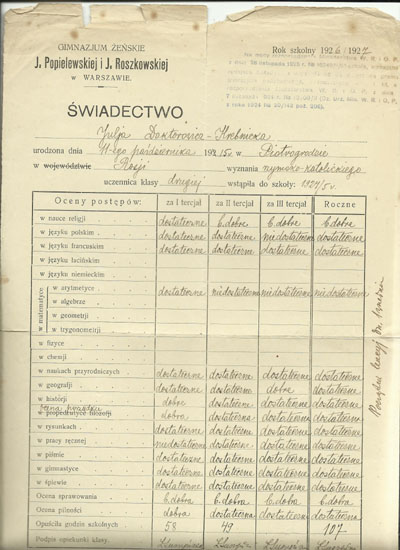 GIMNAZJUM ŻEŃSKIE
J. Popielewskiej i J. Roszkowskiej
W WARSZAWIE.
Rok szkolny 1926/1927
ŚWIADECTWO
Julja Doktorowicz-Hrebnicka
urodzona dnia 11-go października 1915 r. w Piotrogrodzie
w województwie Rosji wyznania rzymsko-katolickiego
uczennica klasy drugiej wstąpiła do szkoły: 1924/5 r.
Oceny postępów: za I tercjał za II tercjał za III tercjał Roczne
w nauce religji dostateczne b. dobre b. dobre b. dobre
w języku polskim dostateczne dostateczne niedostateczne dostateczne
w języku francuskim dostateczne dostateczne dostateczne dostateczne
w języku łacińskim
w języku niemieckim
w matematyce
w arytmetyce dostateczne niedostateczne niedostateczne niedostateczne
w algebrze
w geometrji
w trygonometrji
w fizyce
w chemji
w naukach przyrodniczych dostateczne dostateczne dostateczne dostateczne
w geografji dostateczne dostateczne dobre dostateczne
w historji dobre dostateczne dostateczne dostateczne
w propedeutyce filozofji dobra dostateczna dostateczna dostateczna
w rysunkach dostateczne dostateczne dostateczne dostateczne
w pracy ręcznej niedostateczne dostateczne dostateczne dostateczne
w piśmie dostateczne dostateczne dostateczne dostateczne
w gimnastyce dostateczne dostateczne dostateczne dostateczne
w śpiewie dostateczne dostateczne dostateczne dostateczne
Ocena sprawowania b. dobra b. dobra b. dobra b. dobra
Ocena pilności dobra dostateczna dostateczna dostateczna
Opuściła godzin szkolnych 58 49 107
Podpis opiekunki klasy